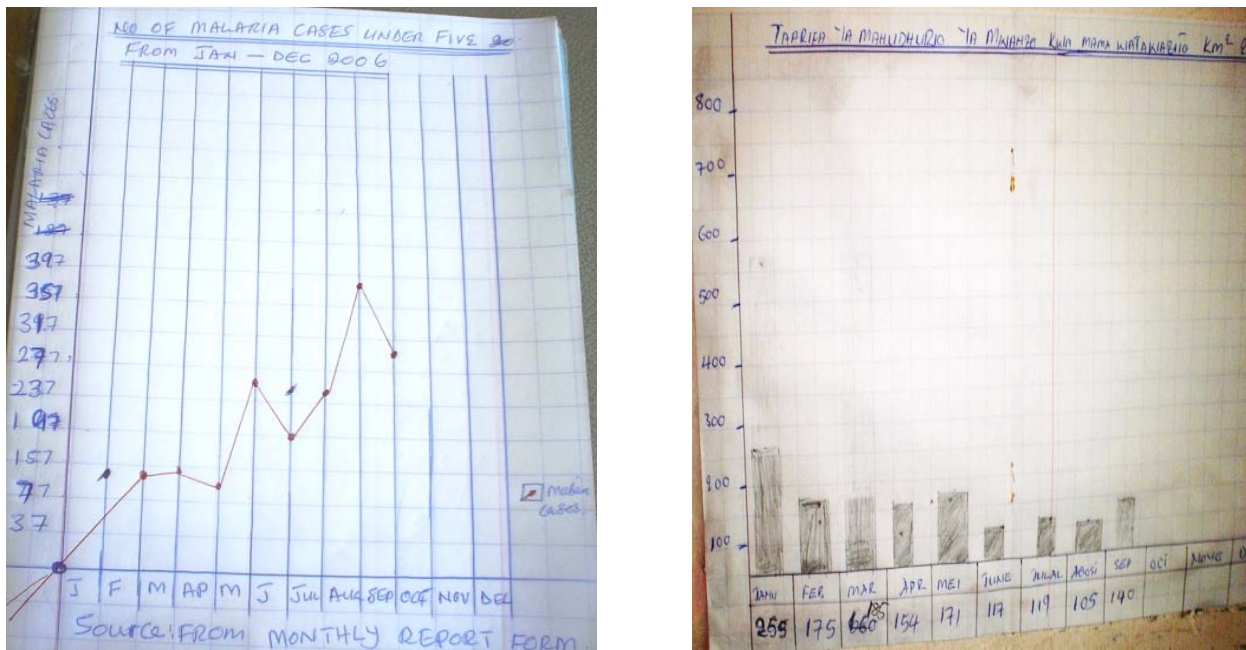 NO OF MALARIA CASES UNDER FIVE
FROM JAN – DEC 2006
MALARIA CASES
397
357
317
277
237
197
157
77
37
J F M AP M J JUL AUG SEP OCT NOV DEC
cases
Source: FROM MONTHLY REPORT FORM
TAARIFA YA MAHUDHURIO YA MWANZO KWA MAMA WATAKAO KM²
800
700
600
500
400
300
200
100
JANU FEB MAR APR MEI JUNE JULAI AGOSI SEP OCI NOVE D
255 175 185 154 171 117 119 105 140